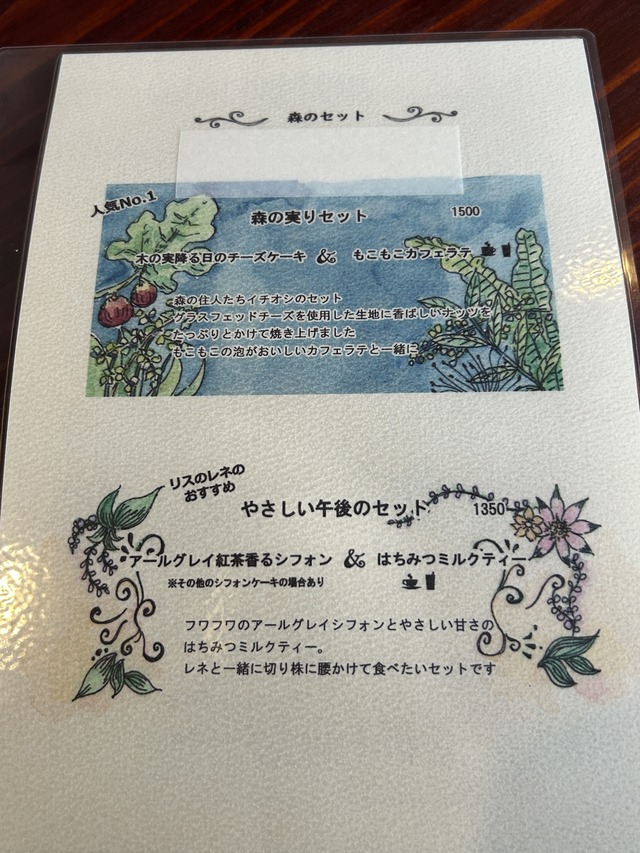 森のセット
人気No.1
森の実りセット 1500
木の実降る日のチーズケーキ & もこもこカフェラテ
森の住人たちイチオシのセット
グラスフェッドチーズを使用した生地に香ばしいナッツを
たっぷりとかけて焼き上げました
もこもこの泡がおいしいカフェラテと一緒に
リスのレネの
おすすめ
やさしい午後のセット 1350
アールグレイ紅茶香るシフォン & はちみつミルクティー
※その他のシフォンケーキの場合あり
フワフワのアールグレイシフォンとやさしい甘さの
はちみつミルクティー。
レネと一緒に切り株に腰かけて食べたいセットです